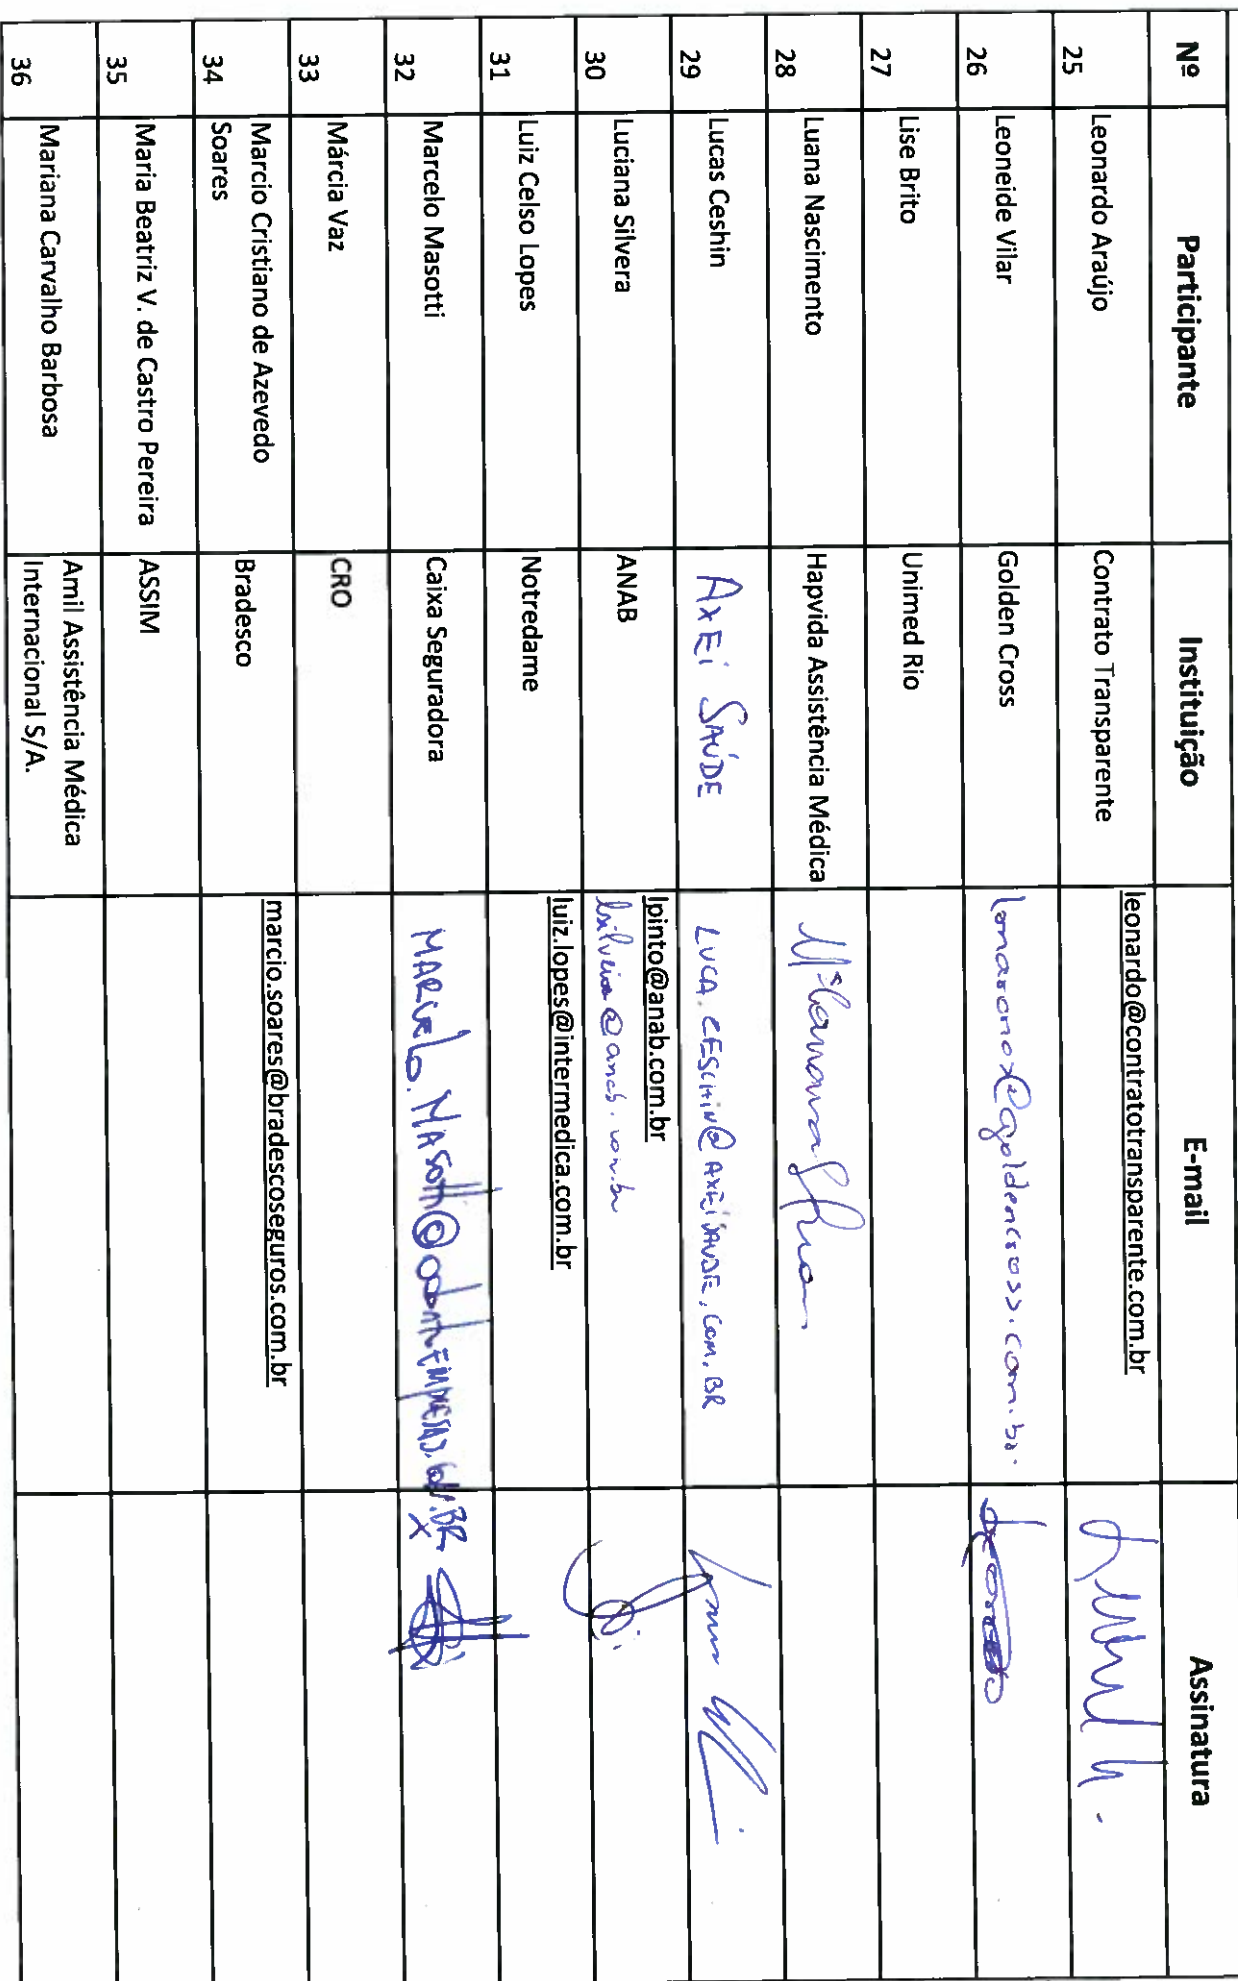 Nº Participante Instituição E-mail Assinatura
25 Leonardo Araújo Contrato Transparente leonardo@contratotransparente.com.br
26 Leoneide Vilar Golden Cross
27 Lise Brito Unimed Rio
28 Luana Nascimento Hapvida Assistência Médica
29 Lucas Ceshin AXEI SAÚDE LUCA.CESCHIN@AXEISAUDE.COM.BR
30 Luciana Silvera ANAB lpinto@anab.com.br
lsilveira@anab.com.br
31 Luiz Celso Lopes Notredame luiz.lopes@intermedica.com.br
32 Marcelo Masotti Caixa Seguradora
33 Márcia Vaz CRO
34 Marcio Cristiano de Azevedo
Soares Bradesco marcio.soares@bradescoseguros.com.br
35 Maria Beatriz V. de Castro Pereira ASSIM
36 Mariana Carvalho Barbosa Amil Assistência Médica
Internacional S/A.